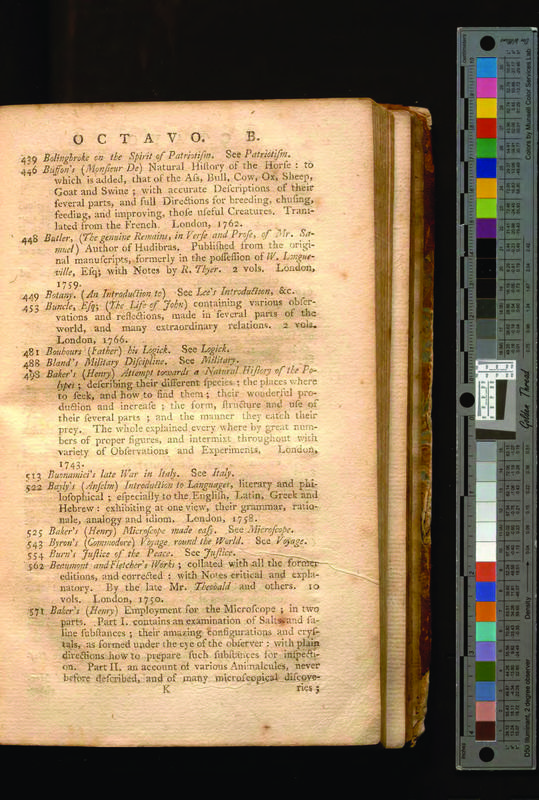 OCTAVO. B.
439 Bolingbroke on the Spirit of Patriotiſm. See Patriotiſm.
446 Buffon's (Monſieur De) Natural Hiſtory of the Horſe : to
which is added, that of the Aſs, Bull, Cow, Ox, Sheep,
Goat and Swine ; with accurate Deſcriptions of their
ſeveral parts, and full Directions for breeding, chuſing,
feeding, and improving, thoſe uſeful Creatures. Tranſ-
lated from the French. London, 1762.
448 Butler, (The genuine Remains, in Verſe and Proſe, of Mr. Sa-
muel) Author of Hudibras. Publiſhed from the origi-
nal manuſcripts, formerly in the poſſeſſion of W. Longue-
ville, Eſq; with Notes by R. Thyer. 2 vols. London,
1759.
449 Botany. (An Introduction to) See Lee's Introduction, &c.
453 Buncle, Eſq; (The Life of John) containing various obſer-
vations and reflections, made in ſeveral parts of the
world, and many extraordinary relations. 2 vols.
London, 1766.
481 Bouhours (Father) his Logick. See Logick.
488 Bland's Military Diſcipline. See Military.
498 Baker's (Henry) Attempt towards a Natural Hiſtory of the Po-
lypei ; deſcribing their different ſpecies ; the places where
to ſeek, and how to find them ; their wonderful pro-
duction and increaſe ; the form, ſtructure and uſe of
their ſeveral parts ; and the manner they catch their
prey. The whole explained every where by great num-
bers of proper figures, and intermixt throughout with
variety of Obſervations and Experiments. London,
1743.
513 Buonamici's late War in Italy. See Italy.
522 Bayly's (Anſelm) Introduction to Languages, literary and phi-
loſophical ; eſpecially to the Engliſh, Latin, Greek and
Hebrew : exhibiting at one view, their grammar, ratio-
nale, analogy and idiom. London, 1758.
525 Baker's (Henry) Microſcope made eaſy. See Microſcope.
543 Byron's (Commodore) Voyage round the World. See Voyage.
554 Burn's Juſtice of the Peace. See Juſtice.
562 Beaumont and Fletcher's Works ; collated with all the former
editions, and corrected : with Notes critical and expla-
natory. By the late Mr. Theobald and others. 10
vols. London, 1750.
571 Baker's (Henry) Employment for the Microſcope ; in two
parts. Part I. contains an examination of Salts and ſa-
line ſubſtances ; their amazing configurations and cryſ-
tals, as formed under the eye of the obſerver : with plain
directions how to prepare ſuch ſubſtances for inſpecti-
on. Part II. an account of various Animalcules, never
before deſcribed, and of many microſcopical diſcove-
K ries ;
Colors by Munsell Color Services Lab
Golden Thread
Density
D50 Illuminant, 2 degree observer